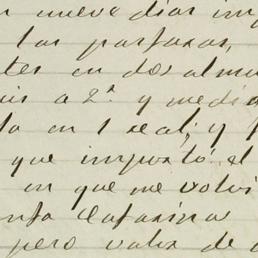 n nueve dias im
las
tes en dos almu
is a 2ª y media
to en 1 real; y
que importó el
en que me volvi
enta
pero valia de